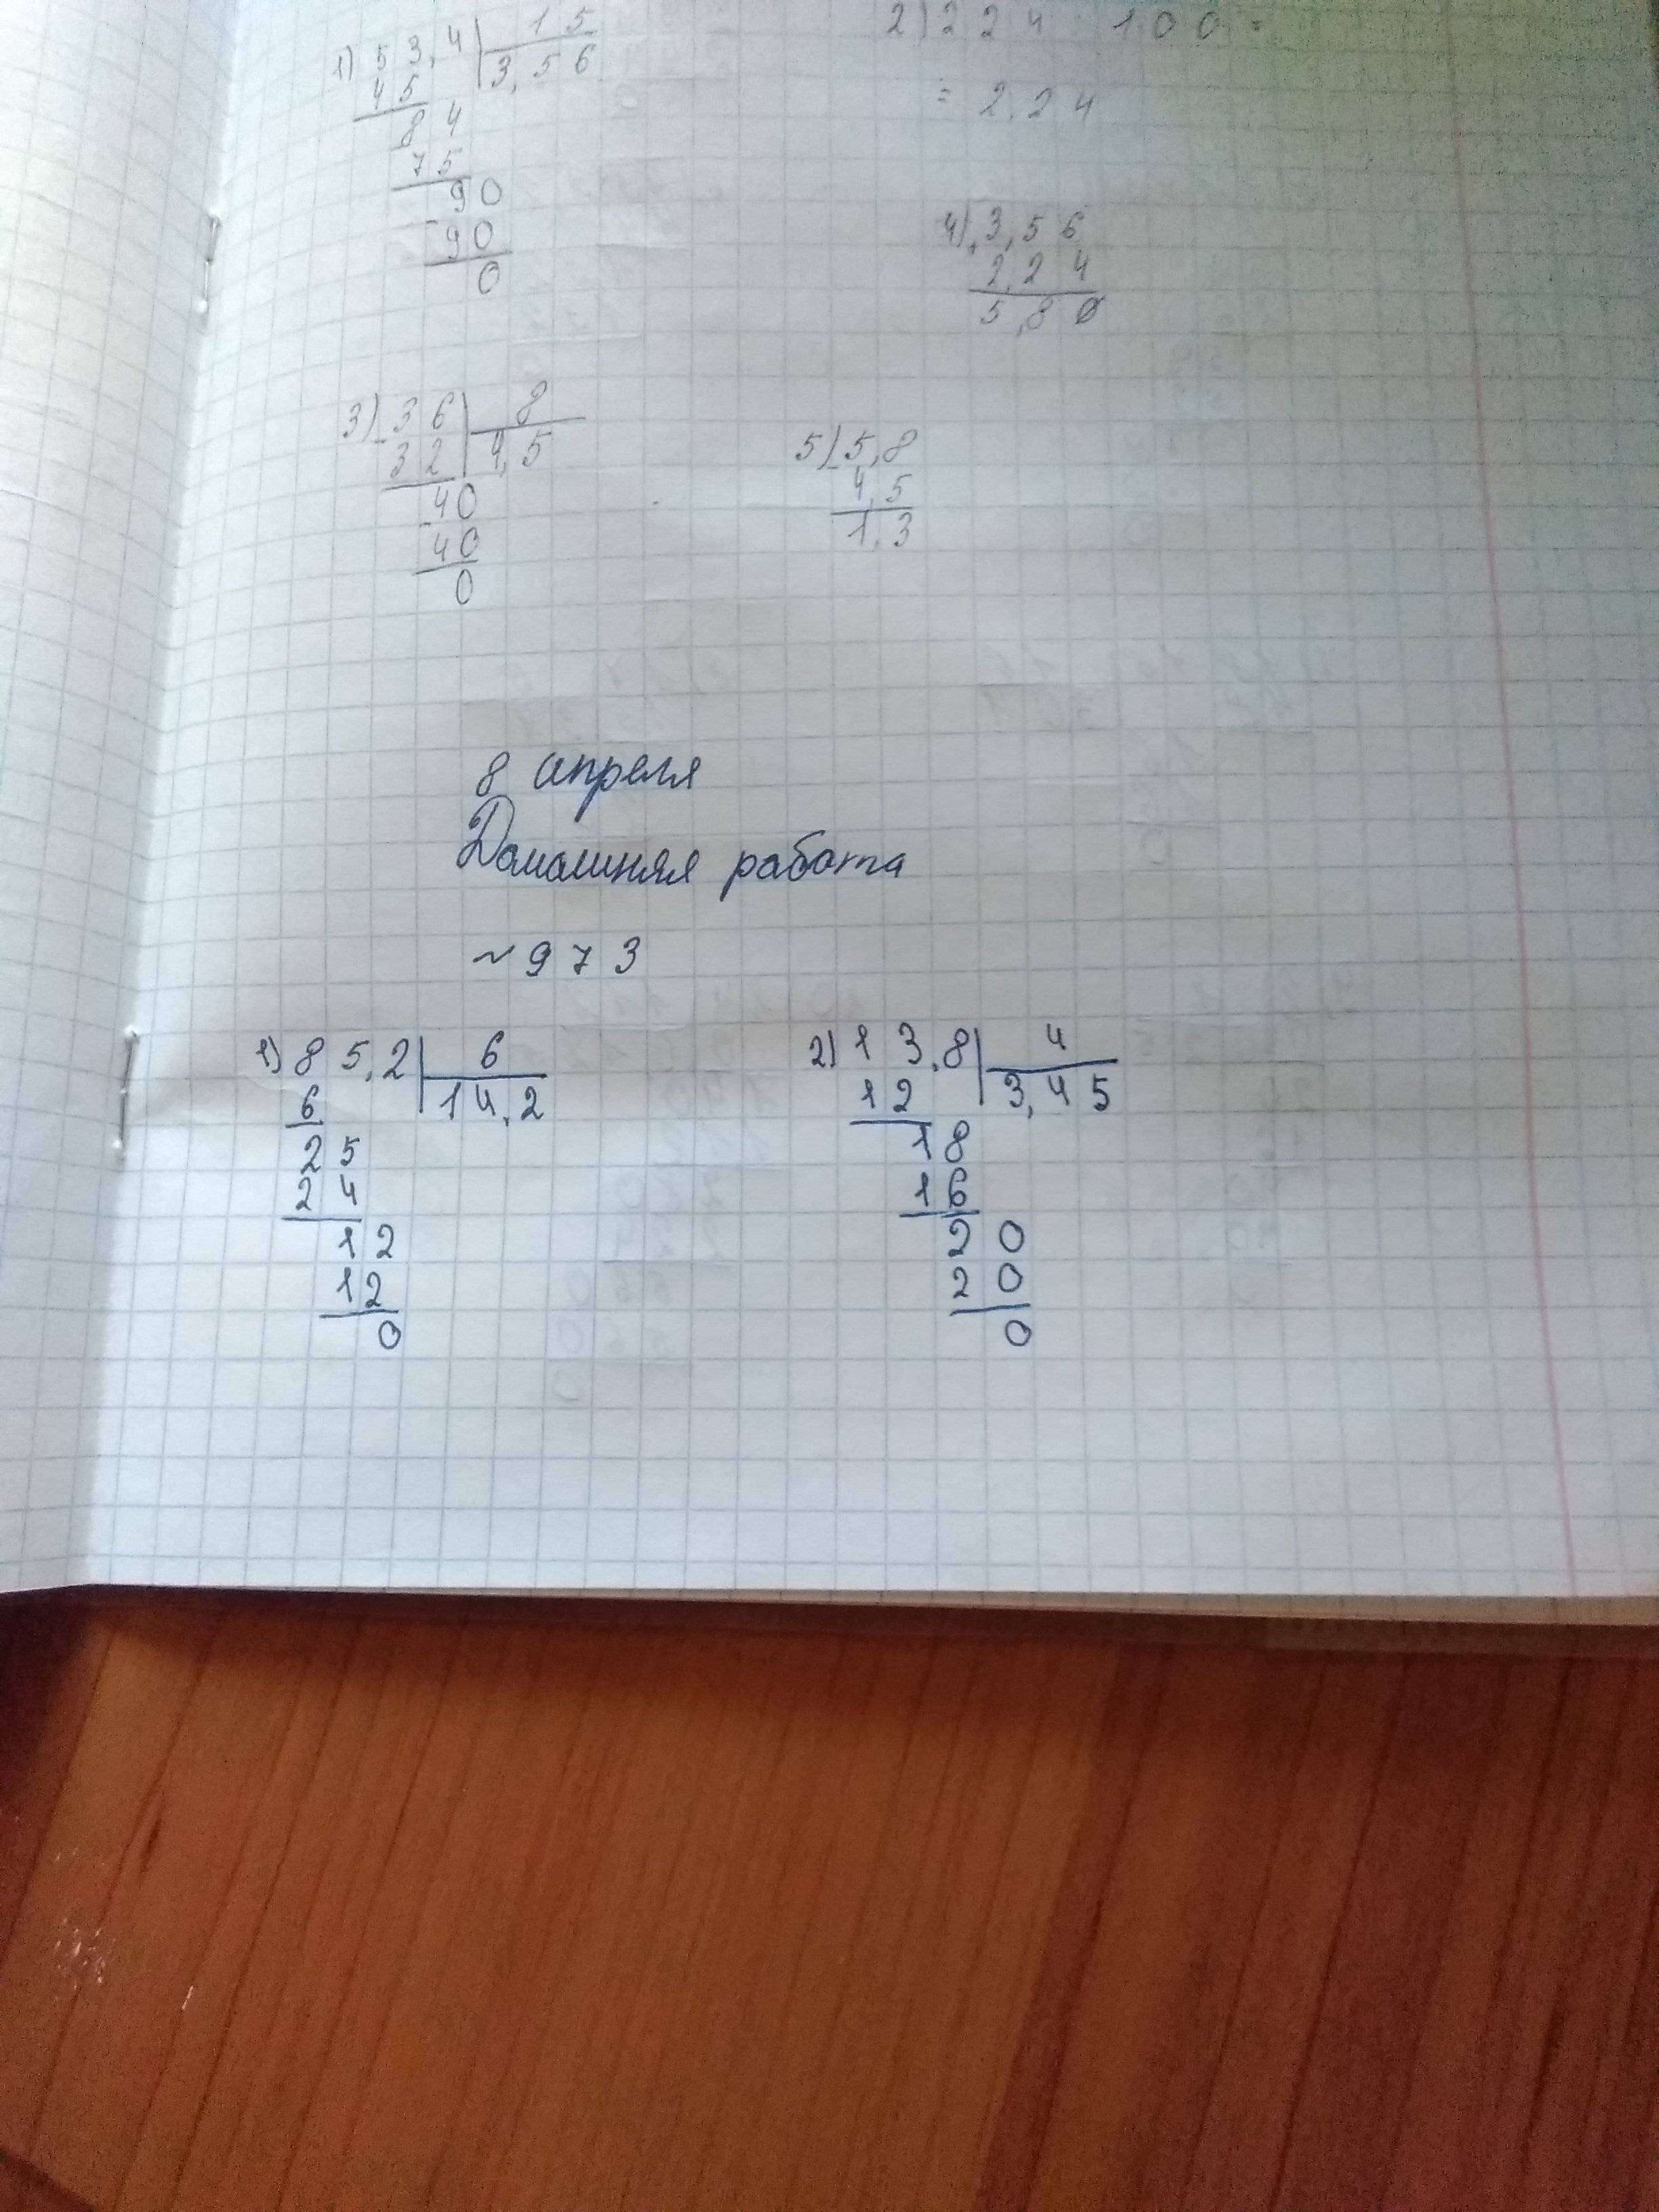 1) 53,4 | 15
45 | 3,56
84
75
90
- 90
0
2) 224 : 100 =
= 2,24
4) + 3,56
2,24
5,80
3) - 36 | 8
32 | 4,5
- 40
40
0
5) - 5,8
4,5
1,3
8 апреля
Домашняя работа
~ 973
1) 85,2 | 6
6 | 14,2
25
24
12
12
0
2) 13,8 | 4
12 | 3,45
18
16
20
20
0